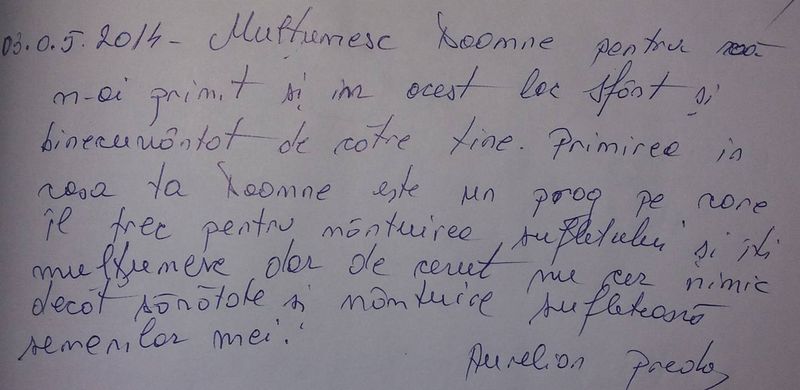 03.0.5.2014 - Mulțumesc Doamne pentru că
m-ai primit și in acest loc sfânt și
binecuvântat de către tine. Primirea in
casa ta Doamne este un prag pe care
îl trec pentru mântuirea sufletului și iți
mulțumesc dar de cerut nu cer nimic
decât sănătate și mântuire sufletească
semenilor mei."
Aurelian Preda